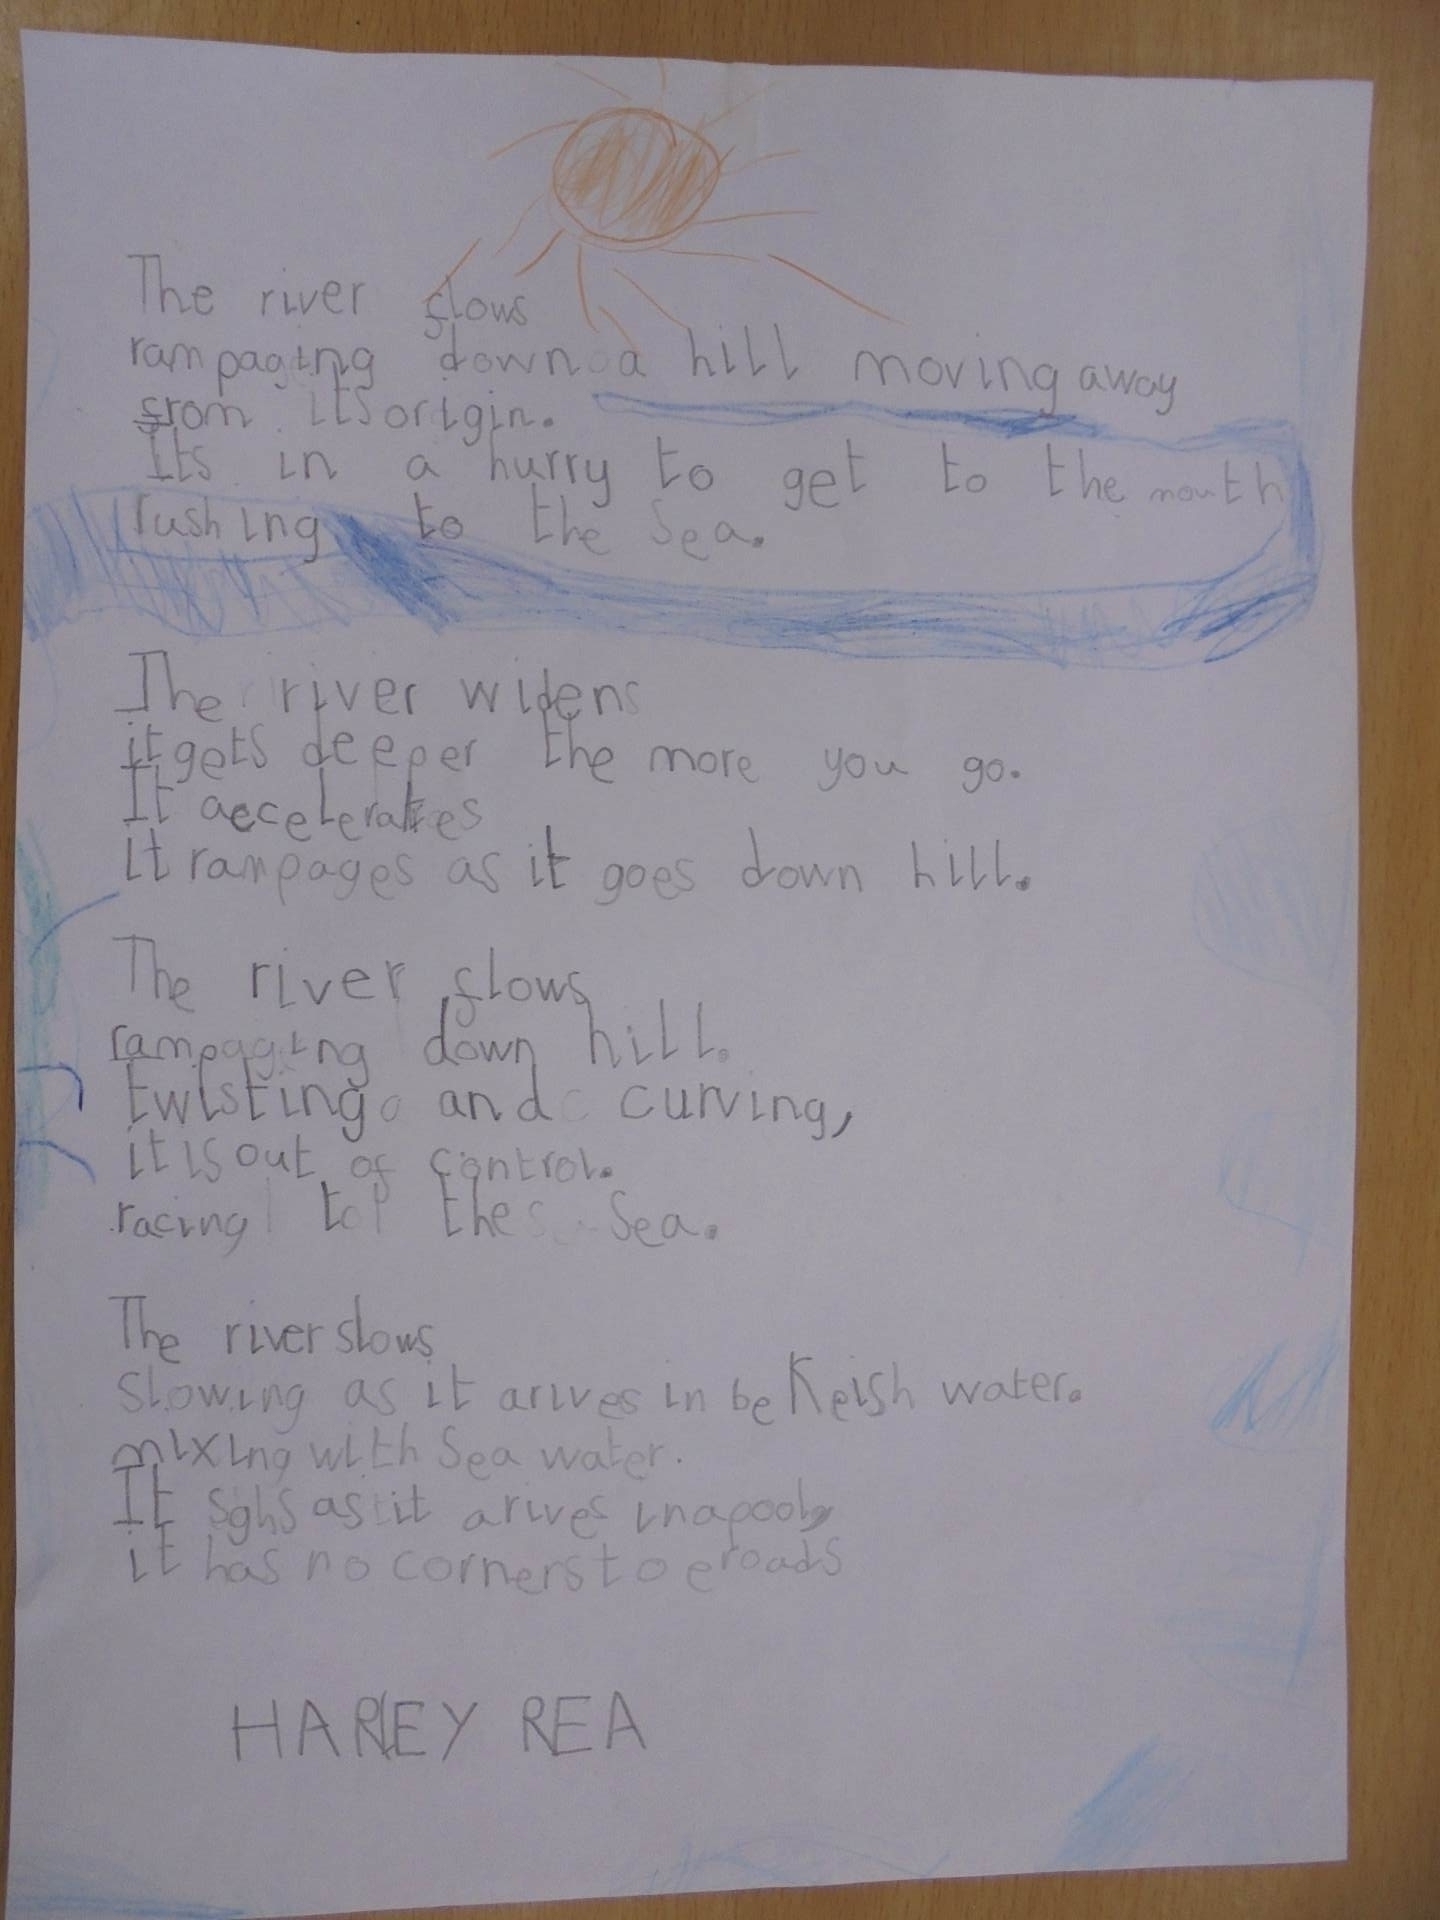 The river flows
rampaging down a hill moving away
from its origin.
Its in a hurry to get to the mouth
rushing to the Sea.
The river widens
it gets deeper the more you go.
It accelerates
it rampages as it goes down hill.
The river flows
rampaging down hill.
twisting and curving,
it is out of control.
racing to the Sea.
The river slows
Slowing as it arives in beKeish water.
mixing with Sea water.
It sghs as it arives in a pool,
it has no corners to eroads
HARLEY REA